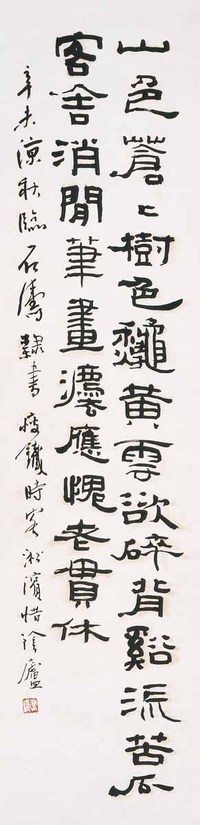 山色蒼〻樹色龝黃雲欲碎背谿流苦瓜
客舍消閒筆畫灋應愧老貫休
辛未深秋臨石濤隸書瘦鐵時客淞濱惜陰廬